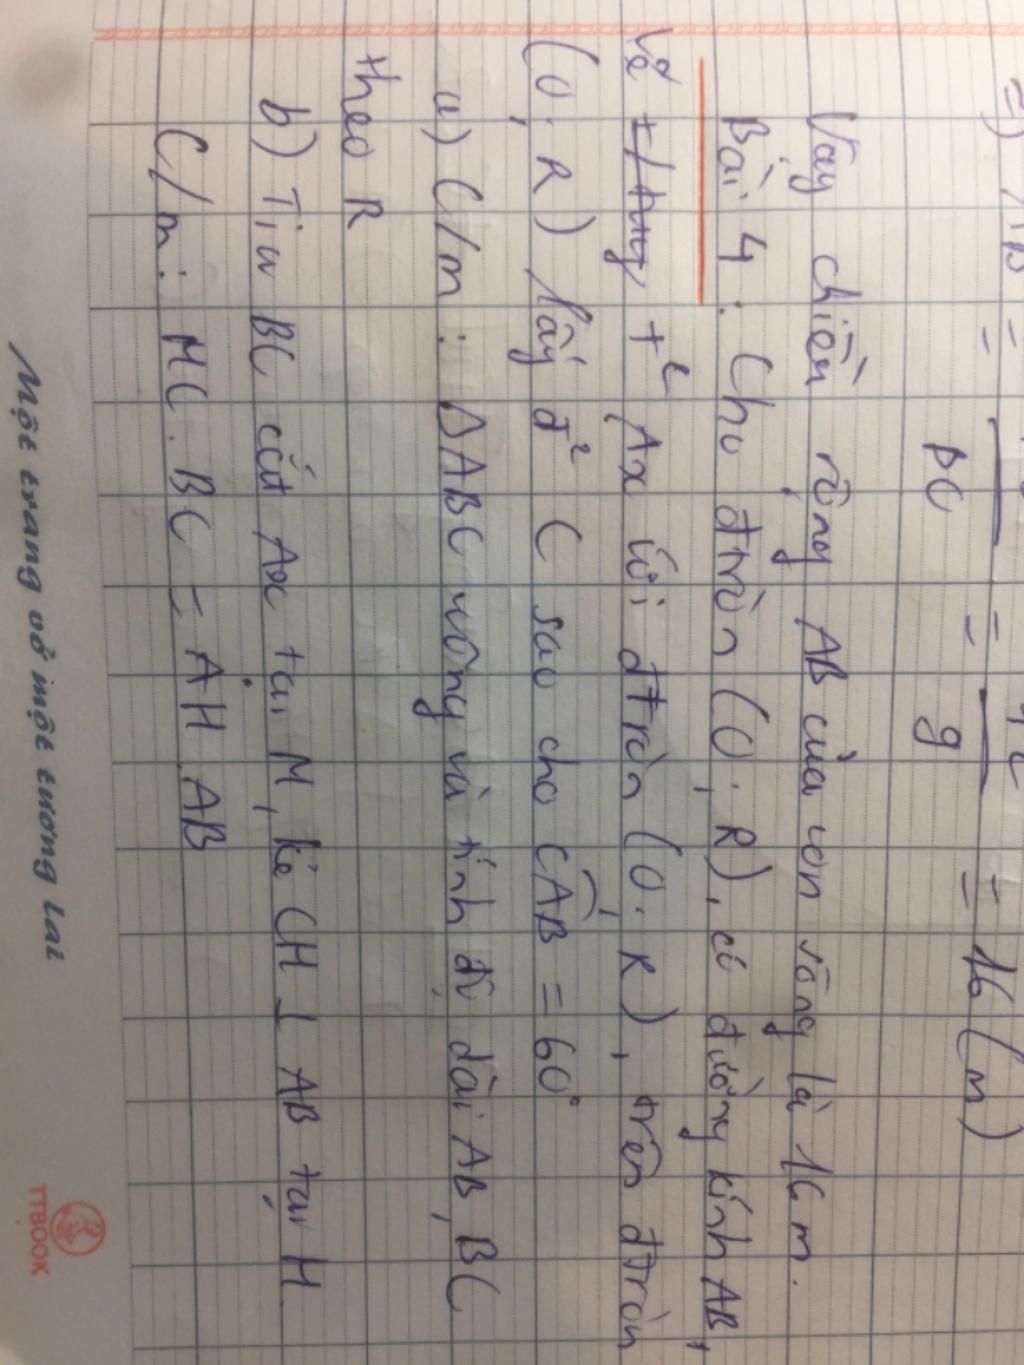 =) AB = = = 16 (m)
BC 9
Vậy chiều rộng AB của con sông là 16 m.
Bài 4 : Cho đtròn (O; R), có đường kính AB,
Vẽ t² Ax với đtròn (O; R), trên đtròn
(O; R) lấy đ² C sao cho CÂB = 60°
a) C/m : ΔABC vuông và tính độ dài AB, BC
theo R
b) Tia BC cắt Ax tại M, kẻ CH ⊥ AB tại H.
C/m : MC . BC = AH . AB
Một trang vở một tương lai
TTBOOK